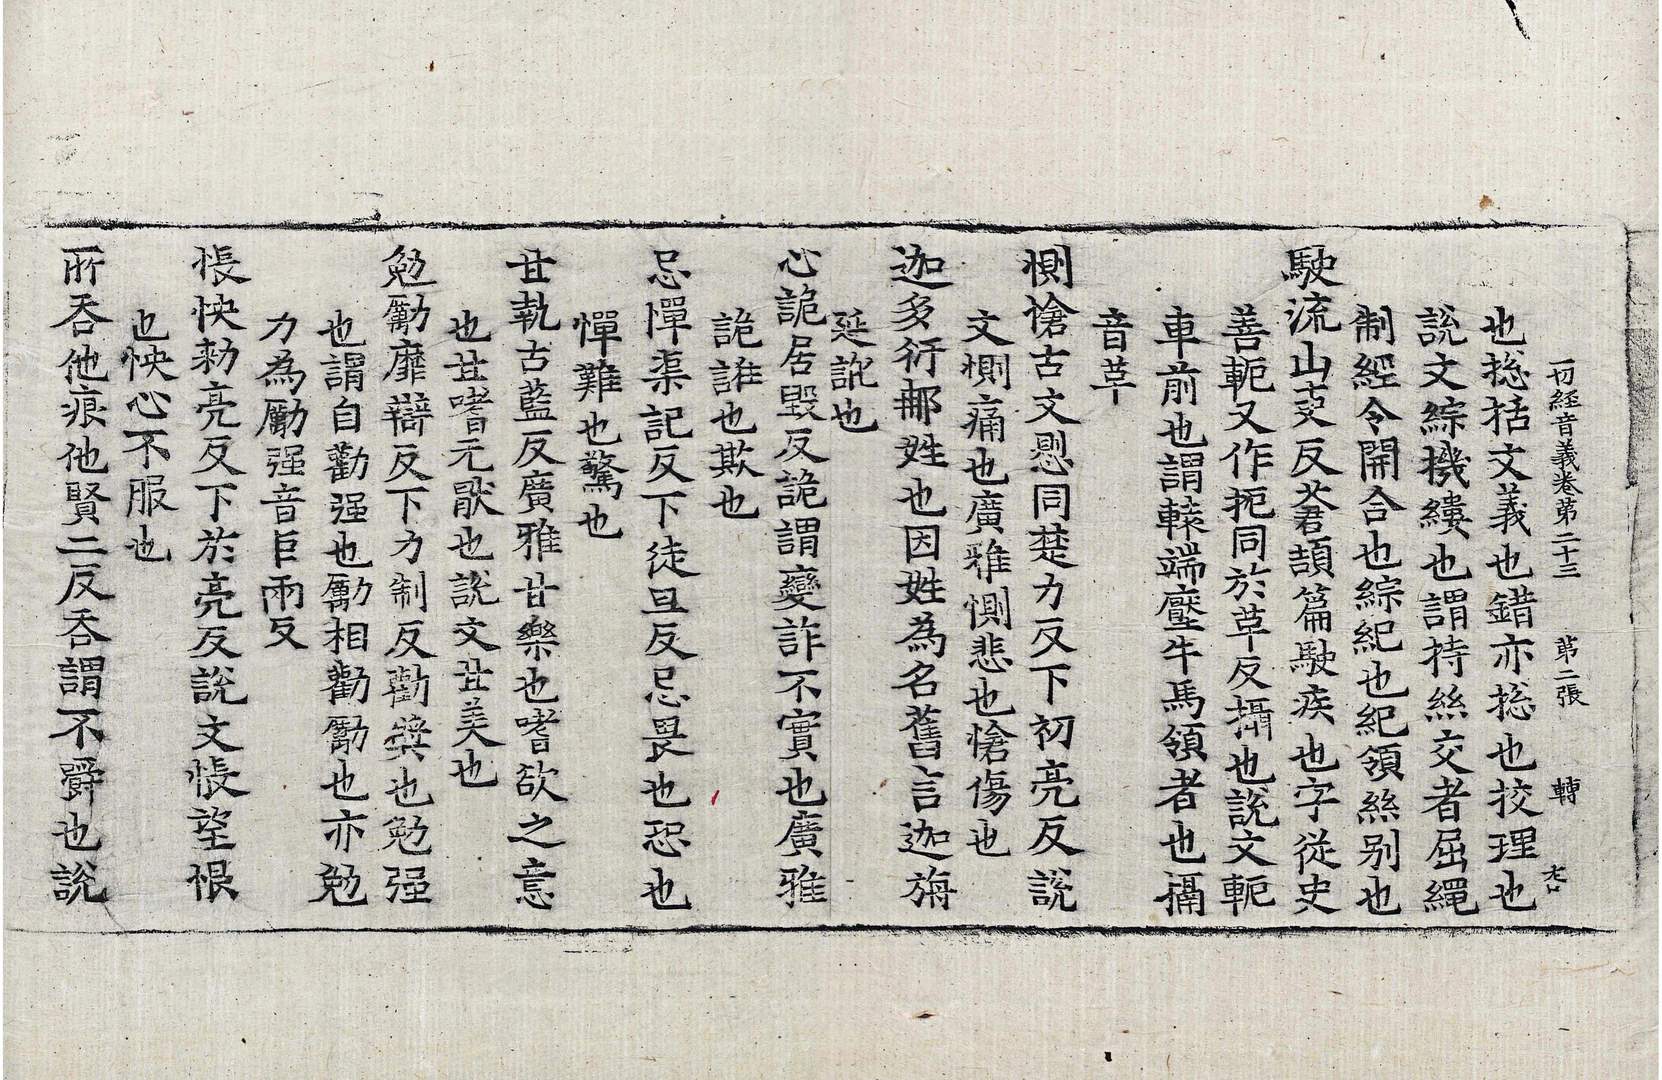 一切経音義卷第二十三 第二張 轉
也捴括文義也錯亦捴也挍理也
說文綜機縷也謂持絲交者屈繩
制經令開合也綜紀也紀領絲別也
駛流山吏反蒼頡篇駛疾也字從史
善軛又作扼同於革反攝也說文軛
車前也謂轅端壓牛馬領者也𢹂
音革
惻愴古文㥽同楚力反下初亮反說
文惻痛也廣雅惻悲也愴傷也
迦多衍那姓也因姓為名舊言迦旃
延訛也
心詭居毀反詭謂變詐不實也廣雅
詭誰也欺也
忌憚渠記反下徒旦反忌畏也恐也
憚難也驚也
甘執古藍反廣雅甘樂也嗜欲之意
也甘嗜无猒也說文甘美也
勉勵靡辯反下力制反勸奬也勉强
也謂自勸强也勵相勸勵也亦勉
力為勵强音巨兩反
悵怏勑亮反下於亮反說文悵望恨
也怏心不服也
所吞他痕他賢二反吞謂不㬭也說